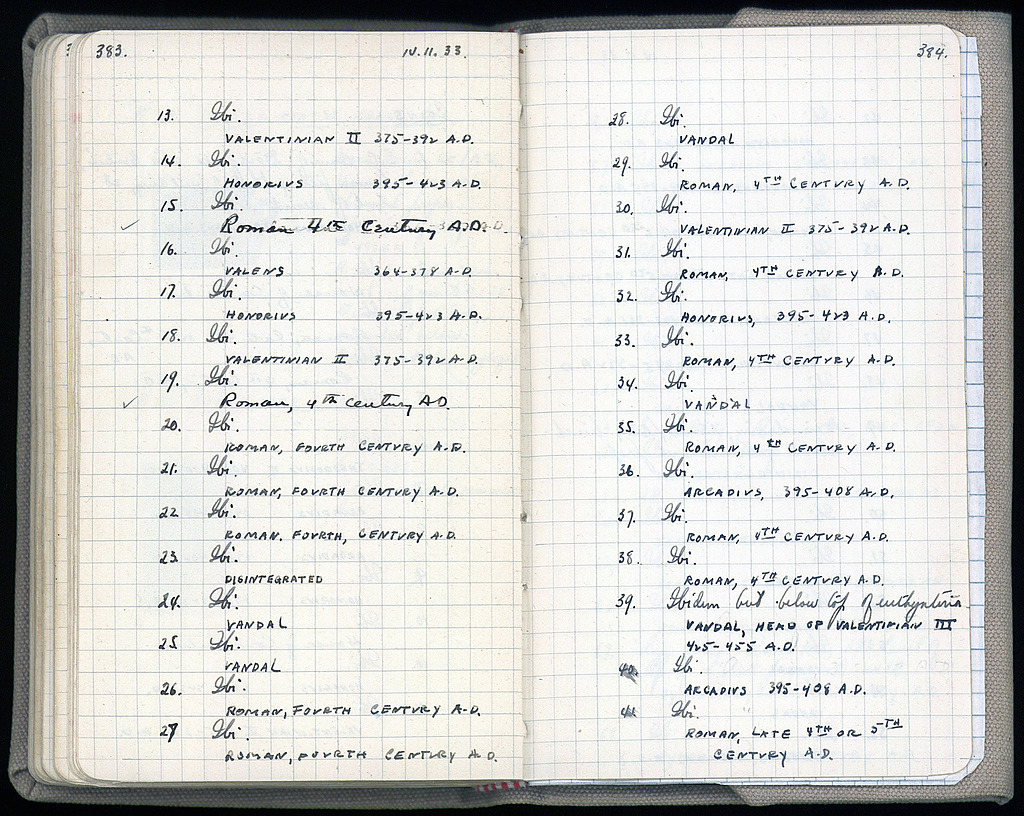 383. IV.11.33.
13. Ibi.
VALENTINIAN II 375-392 A.D.
14. Ibi.
HONORIUS 395-423 A.D.
15. Ibi.
Roman 4th Century A.D.
16. Ibi.
VALENS 364-378 A.D.
17. Ibi.
HONORIUS 395-423 A.D.
18. Ibi.
VALENTINIAN II 375-392 A.D.
19. Ibi.
Roman, 4th century AD.
20. Ibi.
ROMAN, FOURTH CENTURY A.D.
21. Ibi.
ROMAN, FOURTH CENTURY A.D.
22 Ibi.
ROMAN, FOURTH, CENTURY A.D.
23. Ibi.
DISINTEGRATED
24. Ibi.
VANDAL
25. Ibi.
VANDAL
26. Ibi.
ROMAN, FOURTH CENTURY A.D.
27 Ibi.
ROMAN, FOURTH CENTURY A.D.
384.
28. Ibi.
VANDAL
29. Ibi.
ROMAN, 4TH CENTURY A.D.
30. Ibi.
VALENTINIAN II 375-392 A.D.
31. Ibi.
ROMAN, 4TH CENTURY A.D.
32. Ibi.
HONORIUS, 395-423 A.D.
33. Ibi.
ROMAN, 4TH CENTURY A.D.
34. Ibi.
VANDAL
35. Ibi.
ROMAN, 4TH CENTURY A.D.
36. Ibi.
ARCADIUS, 395-408 A.D.
37. Ibi.
ROMAN, 4TH CENTURY A.D.
38. Ibi.
ROMAN, 4TH CENTURY A.D.
39. Ibidem but below top of euthynteria
VANDAL, HEAD OF VALENTINIAN III
425-455 A.D.
40. Ibi.
ARCADIUS 395-408 A.D.
41. Ibi.
ROMAN, LATE 4TH OR 5TH
CENTURY A.D.